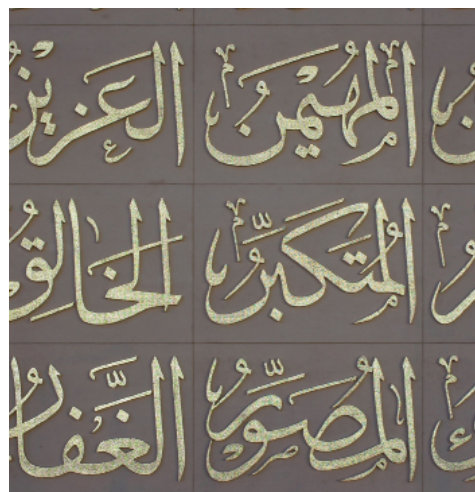 المهيمن العزيز
المتكبر الخالق
المصور الغفار